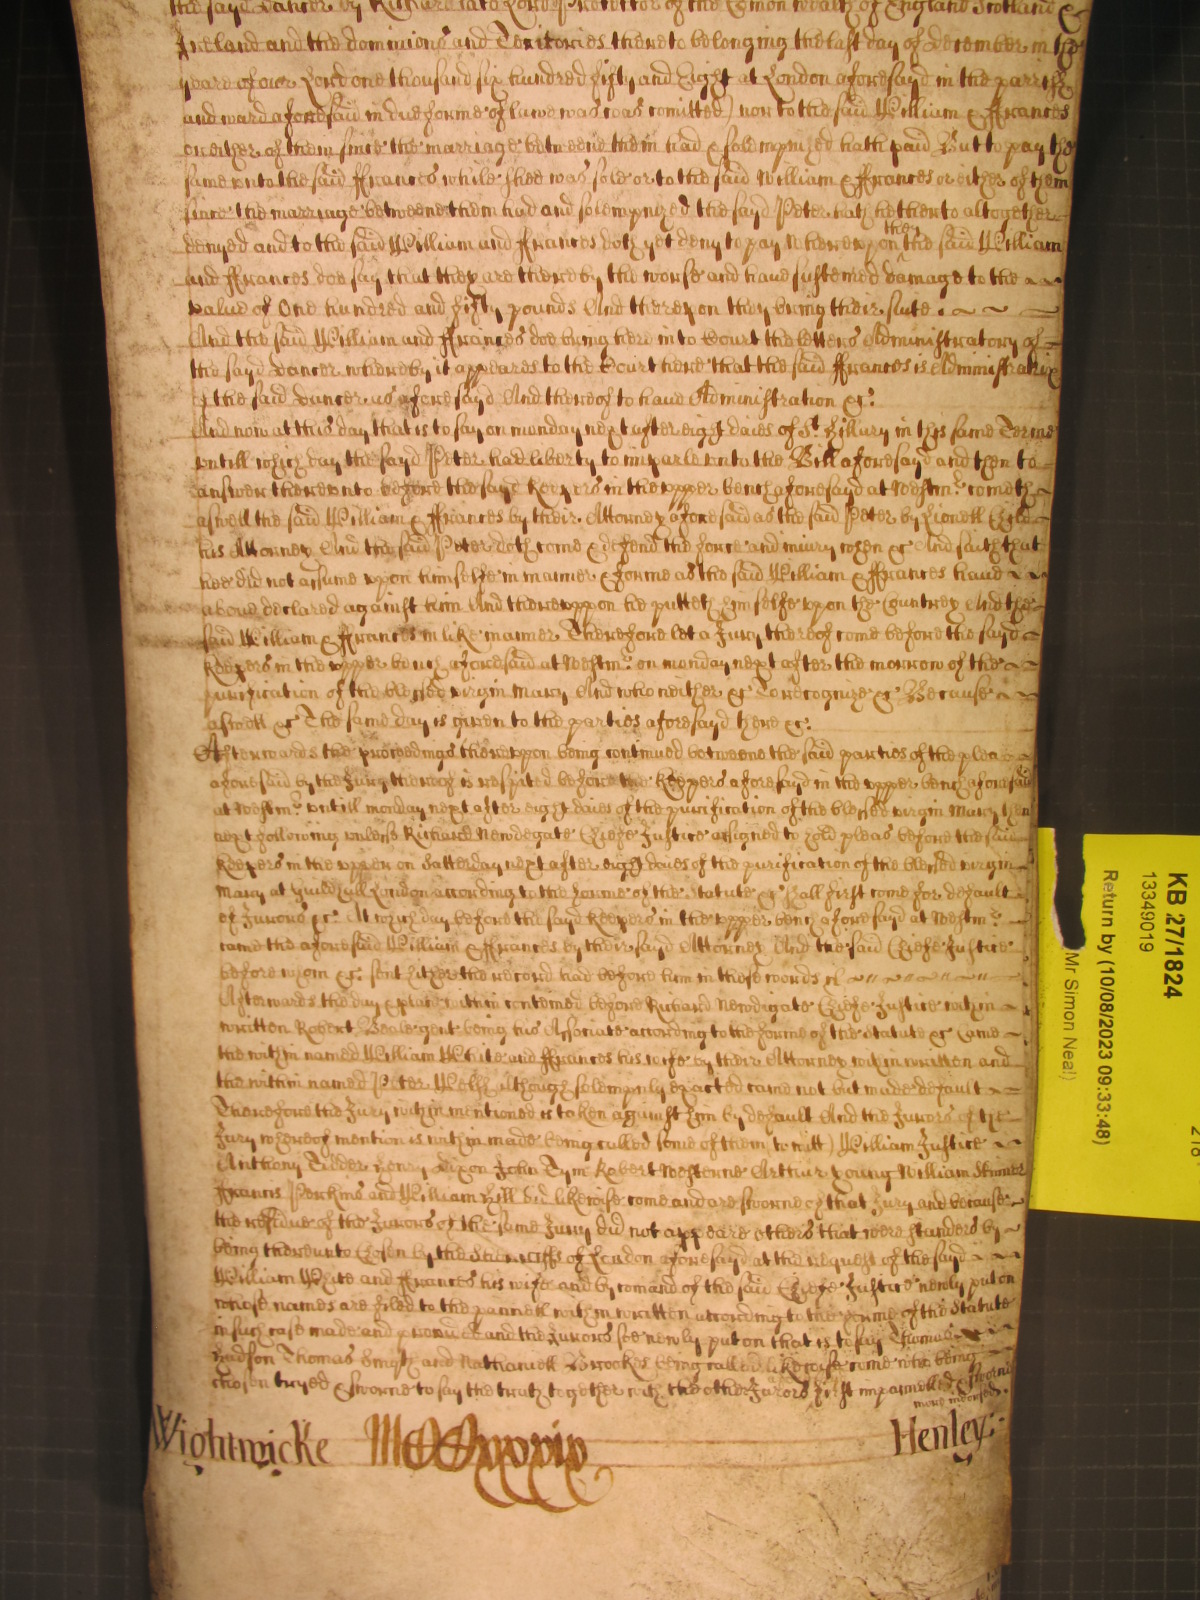 the sayd Dancer by Richard late Lord Protector of the Comon wealth of England Scotland &
Ireland and the dominions and Territories thereto belonging the last day of December in the
yeare of our Lord one thousand six hundred fifty and Eight at London aforesayd in the parrish
and ward aforesaid in due forme of lawe was comitted) nor to the said William & ffrances
or either of them since the marriage betweene them had & solempnized hath paid But to pay the
same unto the said ffrances while shee was sole or to the said William & ffrances or either of them
since the marriage betweene them had and solempnized the sayd Peter hath hitherto altogether
denyed and to the said William and ffrances doth yet deny to pay Whereupon the said William
and ffrances doe say that they are thereby the worse and have susteined damage to the
value of One hundred and fifty pounds And thereupon they bring their suite.
And the said William and ffrances doe bring here in to Court the letters Administratory of
the sayd Dancer whereby it appeares to the Court here that the said ffrances is Administratrix
of the said Dancer as aforesayd And thereof to have Administration &c.
And now at this day that is to say on monday next after eight daies of St. Hillary in this same Terme
untill which day the sayd Peter had liberty to imparle unto the Bill aforesayd and then to
answer thereunto before the sayd Keepers in the upper bench aforesayd at Westmr. cometh
aswell the said William & ffrances by their Attorney aforesaid as the said Peter by Lionell
his Attorney And the said Peter doth come & defend the force and iniury when &c And saith that
hee did not assume upon himselfe in manner & forme as the said William & ffrances have
above declared against him And thereuppon he putteth himselfe upon the Countrey And the
said William & ffrances in like manner Therefore let a Jury thereof come before the sayd
Keepers in the upper bench aforesaid at Westmr. on monday next after the morrow of the
purification of the blessed virgin Mary And who neither &c To recognize &c Because
aswell &c The same day is given to the parties aforesayd here &c.
Afterwards the proceedings thereuppon being continued betweene the said parties of the plea
aforesaid by the Jury thereof is respited before the Keepers aforesayd in the upper bench aforesaid
at Westmr. untill monday next after eight daies of the purification of the blessed virgin Mary then
next following unless Richard Newdegate Chiefe Justice assigned to hold pleas before the said
Keepers in the upper on Satterday next after eight daies of the purification of the blessed virgin
Mary at Guildhall London according to the forme of the Statute &c shall first come for default
of Jurors &c. At which day before the sayd Keepers in the upper bench aforesayd at Westmr.
came the aforesaid William & ffrances by their sayd Attorney And the said Chiefe Justice
before whom &c. sent hither the record had before him in these words
Afterwards the day & place within conteined before Richard Newdigate Chiefe Justice within
written Robert Beale gent being his Associate according to the forme of the Statute &c Came
the within named William White and ffrances his wife by their Attorney within written and
the within named Peter although solempnly exacted came not but made default
Therefore the Jury within mentioned is taken against him by default And the Jurors of the
Jury whereof mention is within made being called some of them to witt) William Justice
Anthony Henry Dixon John Robert Westerne Arthur Young William Skinner
ffrancis Perkins and William Hill did likewise come and are sworne of that Jury and because
the residue of the Jurors of the same Jury did not appeare others that were standers by
being thereunto Chosen by the Sherriffs of London aforesayd at the request of the sayd
William White and ffrances his wife and by comand of the said Chiefe Justice newly put on
whose names are filed to the pannell within written according to the forme of the Statute
in such case made and provided and the Jurors soe newly put on that is to say Thomas
Hudson Thomas Smyth and Nathaniell Brookes being called likewise come who being
chosen tryed & sworne to say the truth together with the other Jurors first impannelled & sworne
Wightwicke
Henley.
KB 27/1824
13349019
Return by (10/08/2023 09:33:48)
Mr Simon Neal)